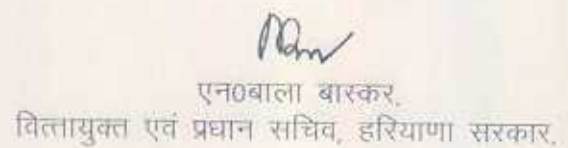 एन0बाला बास्कर,
वित्तायुक्त एवं प्रधान सचिव, हरियाणा सरकार,